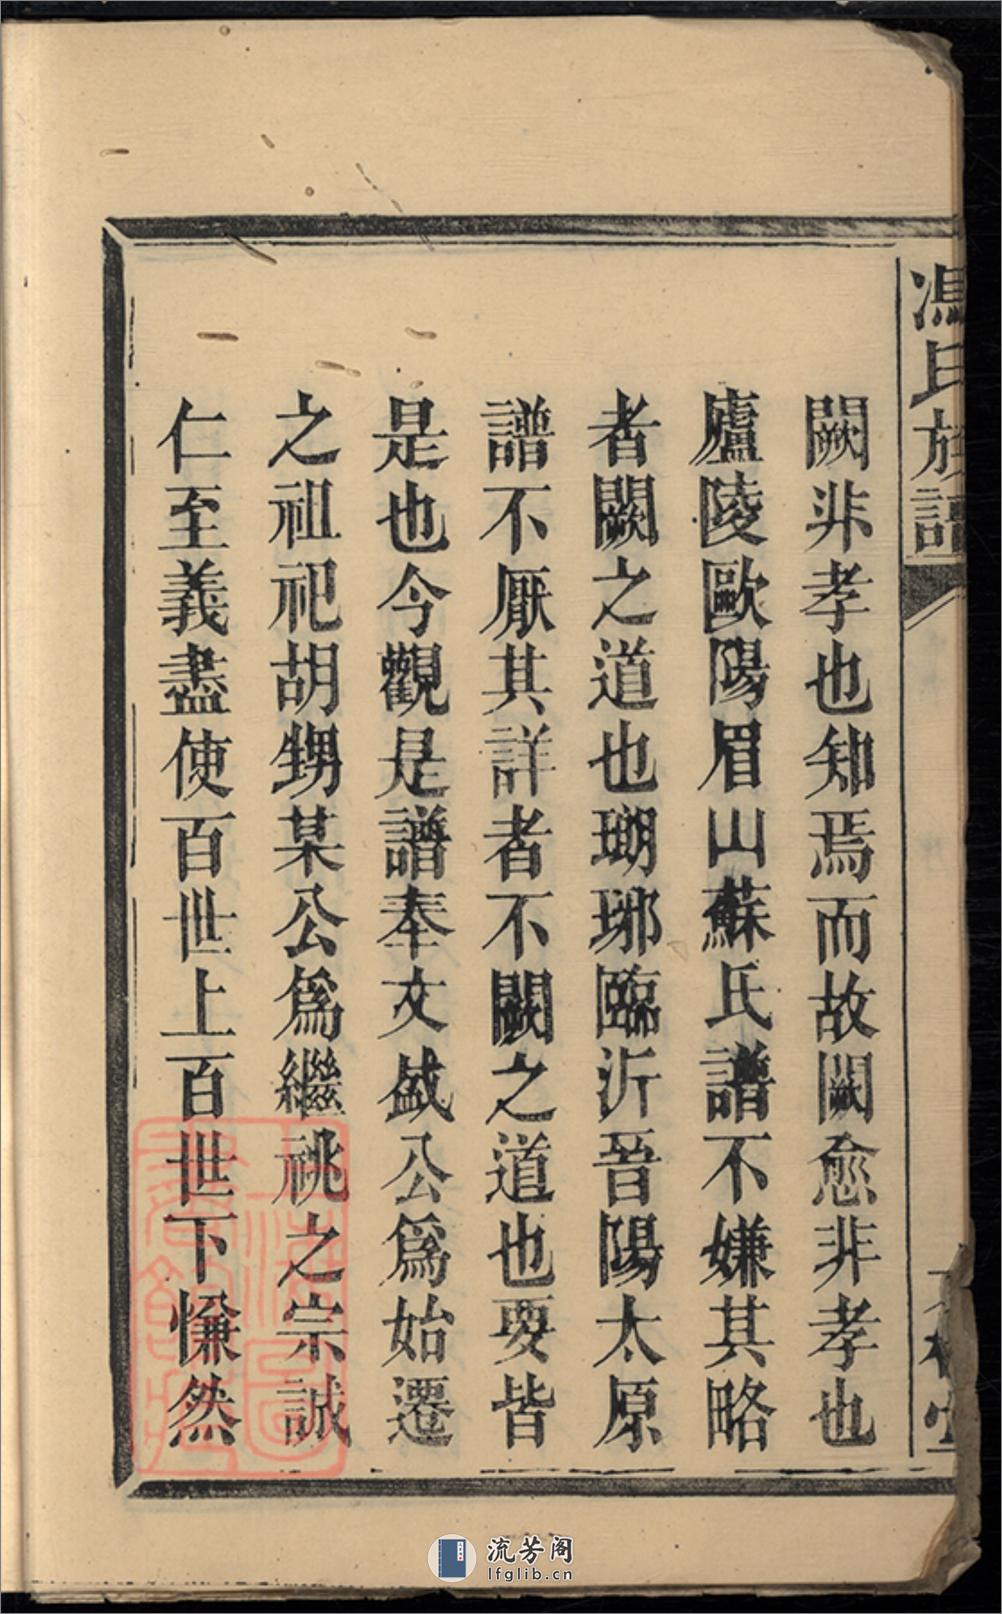 馮氏族譜
闕非孝也知焉而故闕愈非孝也
廬陵歐陽眉山蘇氏譜不嫌其略
者闕之道也瑚琊臨沂晉陽太原
譜不厭其詳者不闕之道也要皆
是也今觀是譜奉文盛公爲始遷
之祖祀胡甥某公爲繼祧之宗誠
仁至義盡使百世上百世下慊然
流芳阁
lfglib.cn